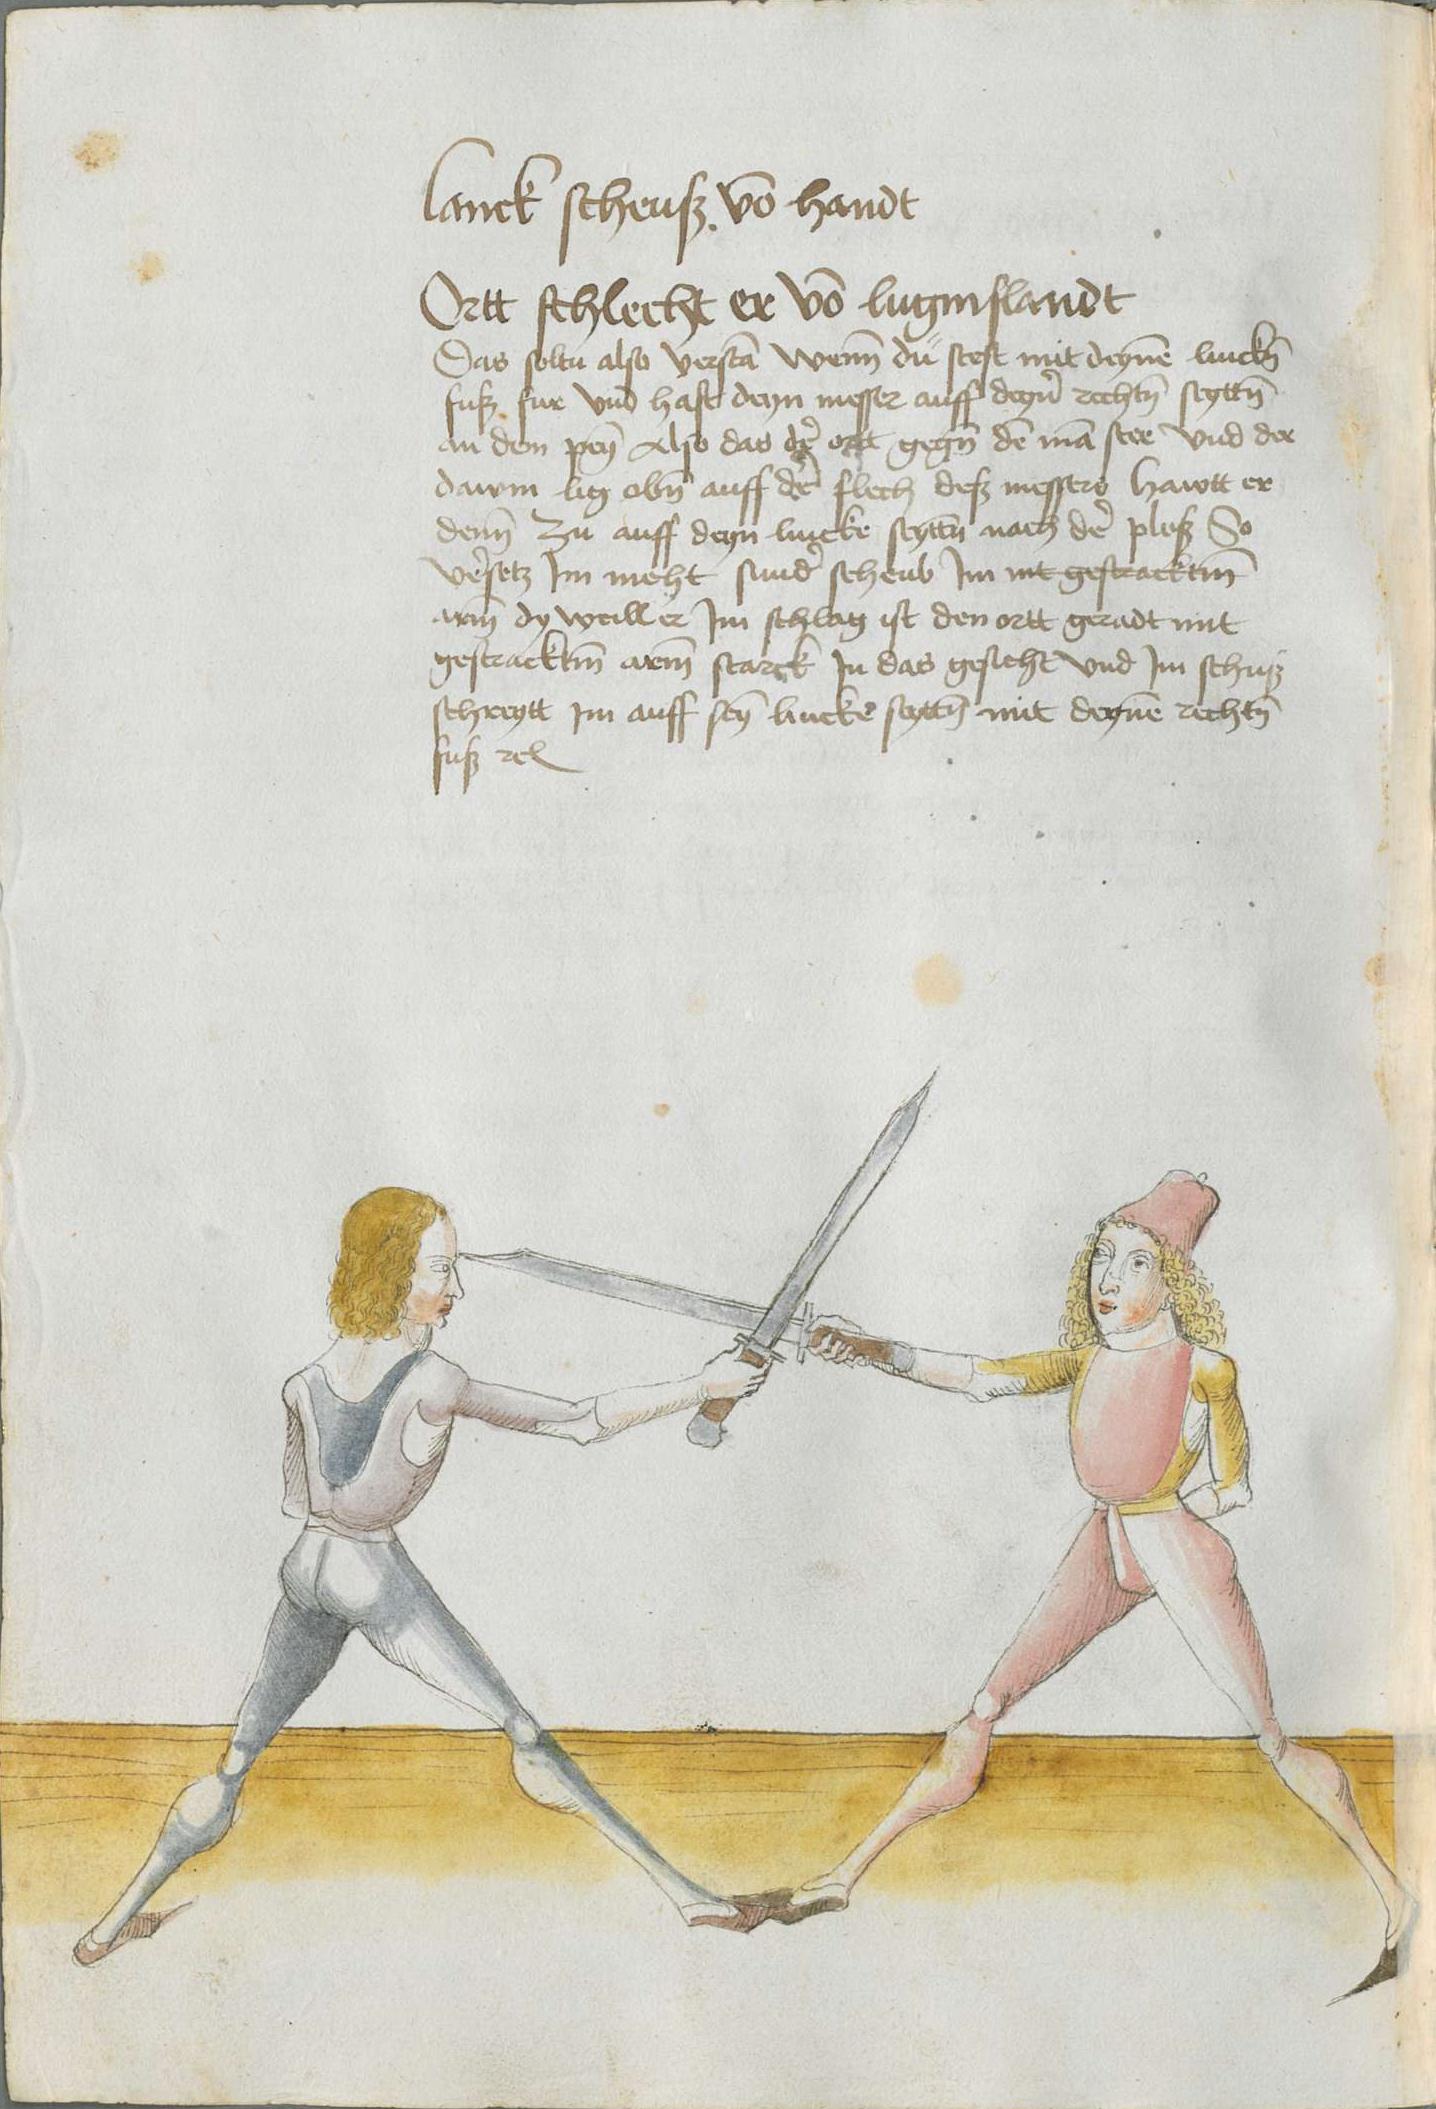 lanck scheuß võ handt
Ortt schlecht er võ luginslandt
Das soltu also verstã wenn̄ dü stest mit deynẽ linckn̄
fuß fur vnd hast deyn messer auff deyn̄ rechtn̄ seyttn̄
an dem peyn̄ Also das der ortt gegn̄ dẽ mã stee vnd der
dawm lig obn̄ auff der flech deß messers Hawtt er
denn̄ zu auff deyn lincke seyttn̄ nach der ploß So
versetz Im nicht sunder scheub Im mt gestracktm̄
arm̄ dy weill er Im schlag ist den ortt geradt mit
gestracktm̄ arm̄ starck In das gesicht vnd Im schuß
schreytt Im auff sey lincke seyttn̄ mit deynẽ rechtn̄
fuß